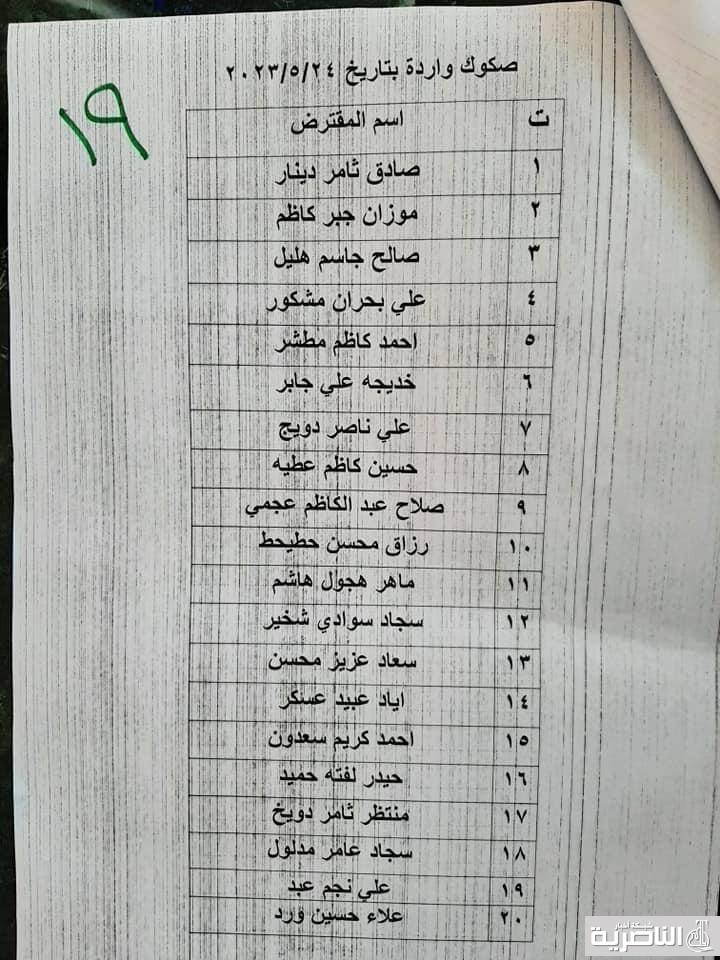 صكوك واردة بتاريخ ٢٠٢٣/٥/٢٤
١٩
ت اسم المقترض
١ صادق ثامر دينار
٢ موزان جبر كاظم
٣ صالح جاسم هليل
٤ علي بحران مشكور
٥ احمد كاظم مطشر
٦ خديجه علي جابر
٧ علي ناصر دويج
٨ حسين كاظم عطيه
٩ صلاح عبد الكاظم عجمي
١٠ رزاق محسن حطيحط
١١ ماهر هجول هاشم
١٢ سجاد سوادي شخير
١٣ سعاد عزيز محسن
١٤ اياد عبيد عسكر
١٥ احمد كريم سعدون
١٦ حيدر لفته حميد
١٧ منتظر ثامر دويخ
١٨ سجاد عامر مدلول
١٩ علي نجم عبد
٢٠ علاء حسين ورد
شبكة اخبار
الناصرية